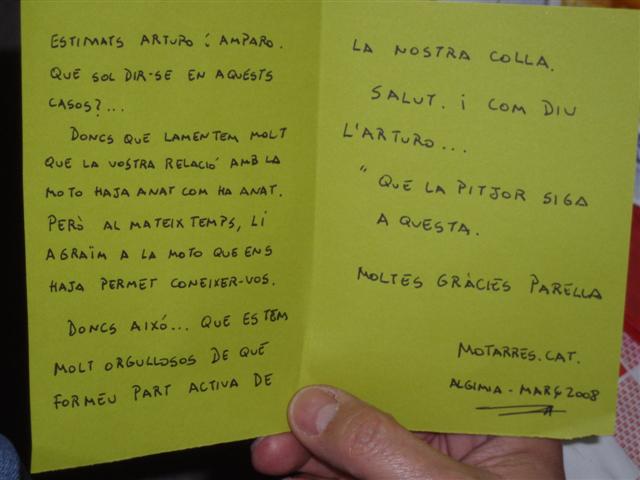 ESTIMATS ARTURO I AMPARO.
QUÈ SOL DIR-SE EN AQUESTS
CASOS?...
DONCS QUE LAMENTEM MOLT
QUE LA VOSTRA RELACIÓ AMB LA
MOTO HAJA ANAT COM HA ANAT.
PERÒ AL MATEIX TEMPS, LI
AGRAÏM A LA MOTO QUE ENS
HAJA PERMET CONEIXER-VOS.
DONCS AIXÓ... QUE ESTEM
MOLT ORGULLOSOS DE QUÈ
FORMEU PART ACTIVA DE
LA NOSTRA COLLA.
SALUT. I COM DIU
L'ARTURO...
"QUE LA PITJOR SIGA
AQUESTA.
MOLTES GRÀCIES PARELLA
MOTARRES.CAT.
ALGIMIA - MARÇ 2008